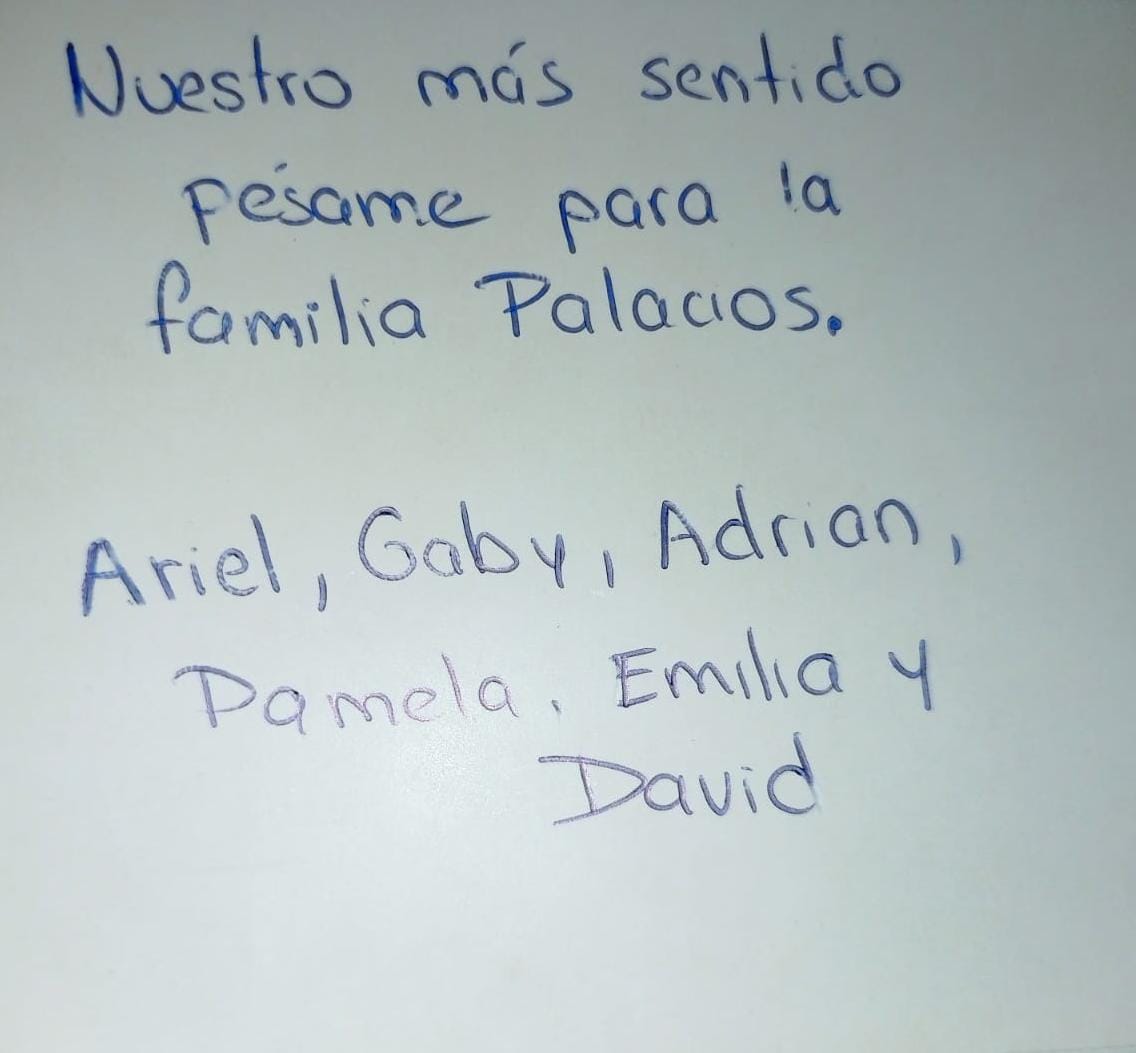 Nuestro más sentido
pésame para la
familia Palacios.
Ariel, Gaby, Adrian,
Pamela, Emilia y
David